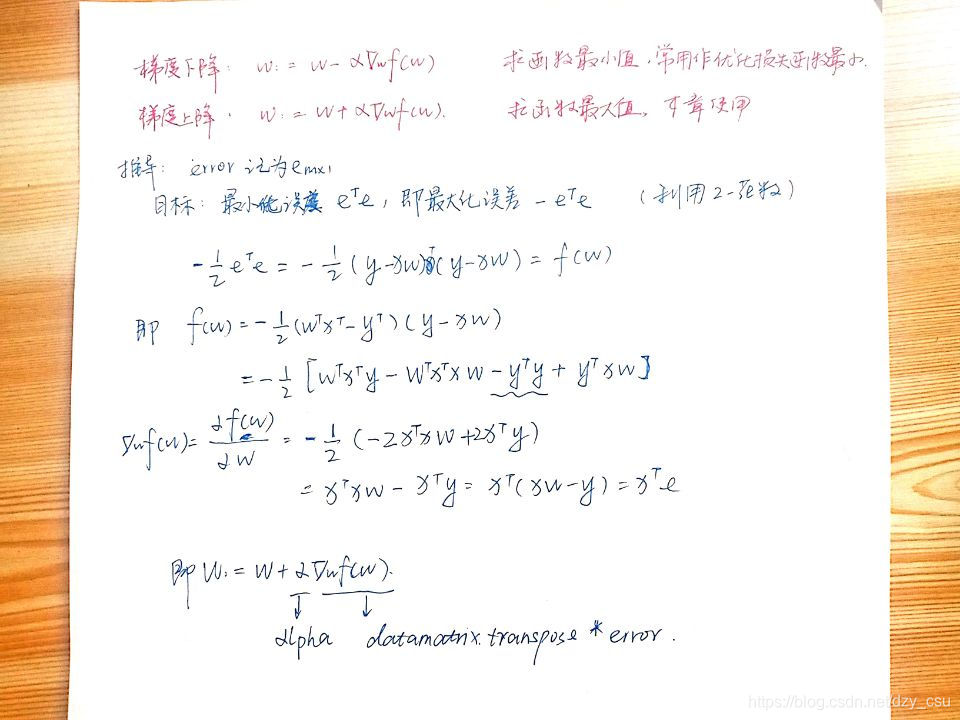 梯度下降: w := w - α∇wf(w) 求函数最小值,常用作优化损失函数最小.
梯度上升. w := w + α∇wf(w). 求函数最大值,
推导: error 记为 em×1
目标: 最小化误差 eᵀe, 即最大化误差 - eᵀe (利用2-范数)
-1/2 eᵀe = -1/2 (y-xw)ᵀ(y-xw) = f(w)
即 f(w) = -1/2 (wᵀxᵀ - yᵀ)(y - xw)
= -1/2 [wᵀxᵀy - wᵀxᵀxw - yᵀy + yᵀxw]
∇wf(w) = ∂f(w)/∂w = -1/2 (-2xᵀxw + 2xᵀy)
= xᵀxw - xᵀy = xᵀ(xw - y) = xᵀe
即 w := w + α∇wf(w).
↓ ↓
alpha datamatrix.transpose * error.
https://blog.csdn.net/dzy_csu